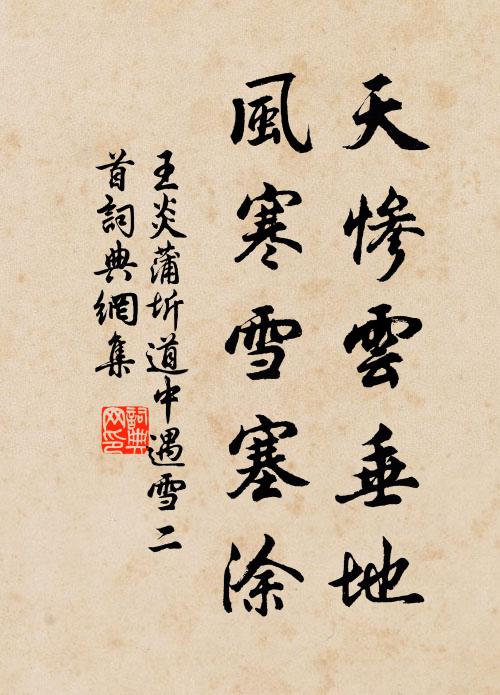 天慘雲垂地
風寒雪塞涂
王炎蒲圻道中遇雪二
首詞典網集
詞典
网印